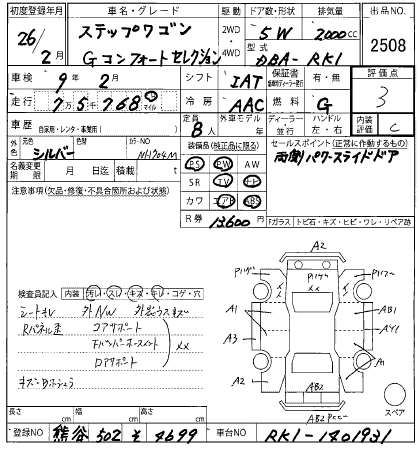 初度登録年月
車名・グレード
駆動
ドア数・形状
排気量
出品NO.
26/2月
ステップワゴン
Gコンフォートセレクション
2WD・4WD
5W
2000cc
型式
DBA-RK1
2508
車検
9年2月
シフト
IAT
保証書
有・無
評価点
3
走行
7万5千768
マイル
冷房
AAC
燃料
G
車歴
自家用・レンタ・事業用( )
定員
8人
外車モデル
年
ディーラー・並行
ハンドル
左・右
内装評価
C
外色
元色
シルバー
色替
カラーNO
NH704M
装備品(純正品に限る)
セールスポイント(正常に作動するもの)
両側パワースライドドア
名義変更期限
月 日迄
積載
t
PS PW AW
SR TV ナビ
カワ エアB ABS
注意事項(欠品・修復・不具合箇所および状態)
R券
13,600円
Fガラス
トビ石・キズ・ヒビ・ワレ・リペア跡
検査員記入
内装
汚レ・スレ・キズ・キレ・コゲ・穴
コアサポート
××
A2
××
A1
A3
A2
AB1
AY1
A1
AB2
スペア
長さ
cm
幅
cm
高さ
cm
登録NO
熊谷 502 そ 4699
車台NO
RK1-1401931